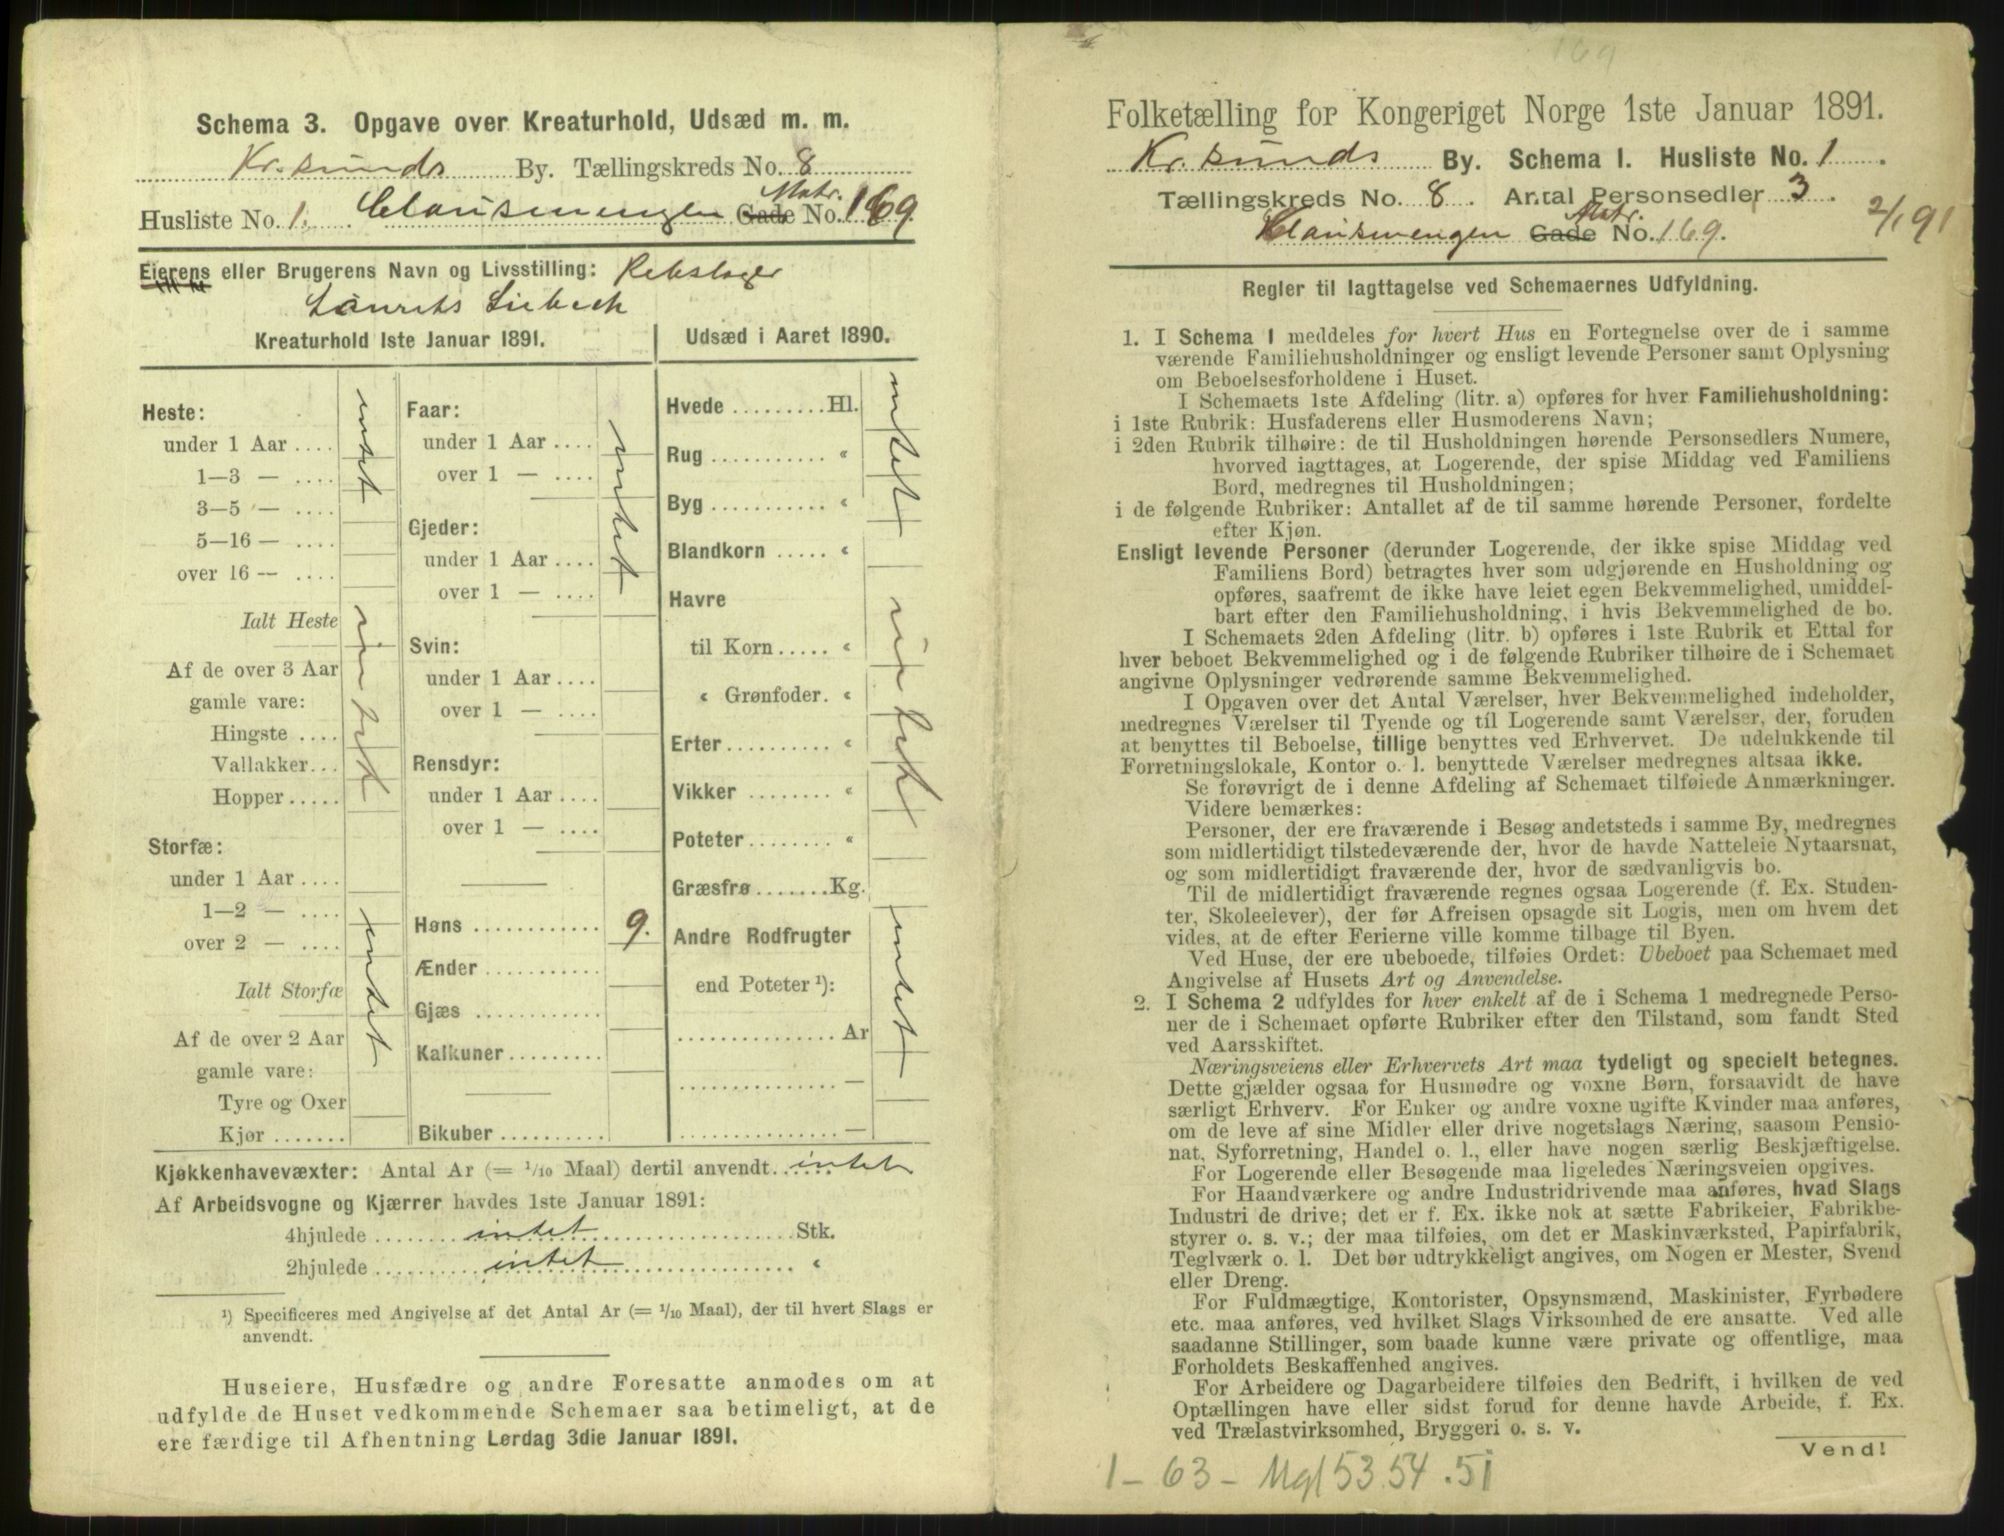 Schema 3. Opgave over Kreaturhold, Udsæd m. m.
Kr.sunds By. Tællingskreds No. 8
Husliste No. 1. Clausenengen Gade Matr. No. 169.
Eierens eller Brugerens Navn og Livsstilling: Rebslager
Laurits Liebeck
Kreaturhold 1ste Januar 1891.
Heste:
under 1 Aar ....
1—3 — ....
3—5 — ....
5—16 — ....
over 16 — ....
Ialt Heste
Af de over 3 Aar
gamle vare:
Hingste ....
Vallakker...
Hopper .....
intet
intet
Storfæ:
under 1 Aar ....
1—2 — ....
over 2 — ....
Ialt Storfæ
Af de over 2 Aar
gamle vare:
Tyre og Oxer
Kjør .......
intet
Faar:
under 1 Aar ....
over 1 — ....
Gjeder:
under 1 Aar ....
over 1 — ....
intet
Svin:
under 1 Aar ....
over 1 — ....
Rensdyr:
under 1 Aar ....
over 1 — ....
Høns ............ 9.
Ænder ...........
Gjæs ............
Kalkuner .........
Bikuber ..........
Udsæd i Aaret 1890.
Hvede ......... Hl.
Rug ........... "
Byg ........... "
Blandkorn ..... "
Havre
til Korn ..... "
" Grønfoder. "
Erter .......... "
Vikker ........ "
Poteter ........ "
Græsfrø ....... Kg.
Andre Rodfrugter
end Poteter ¹):
............... Ar
............... —
............... —
intet
intet
intet
Kjøkkenhavevæxter: Antal Ar (= 1/10 Maal) dertil anvendt. intet
Af Arbeidsvogne og Kjærrer havdes 1ste Januar 1891:
4hjulede ........ intet ........ Stk.
2hjulede ........ intet ........ "
¹) Specificeres med Angivelse af det Antal Ar (= 1/10 Maal), der til hvert Slags er
anvendt.
Huseiere, Husfædre og andre Foresatte anmodes om at
udfylde de Huset vedkommende Schemaer saa betimeligt, at de
ere færdige til Afhentning Lørdag 3die Januar 1891.
169
Folketælling for Kongeriget Norge 1ste Januar 1891.
Kr.sunds By. Schema 1. Husliste No. 1.
Tællingskreds No. 8. Antal Personsedler 3.
Clausenengen Gade Matr. No. 169.
2/1 91
Regler til Iagttagelse ved Schemaernes Udfyldning.
1. I Schema 1 meddeles for hvert Hus en Fortegnelse over de i samme
værende Familiehusholdninger og ensligt levende Personer samt Oplysning
om Beboelsesforholdene i Huset.
I Schemaets 1ste Afdeling (litr. a) opføres for hver Familiehusholdning:
i 1ste Rubrik: Husfaderens eller Husmoderens Navn;
i 2den Rubrik tilhøire: de til Husholdningen hørende Personsedlers Numere,
hvorved iagttages, at Logerende, der spise Middag ved Familiens
Bord, medregnes til Husholdningen;
i de følgende Rubriker: Antallet af de til samme hørende Personer, fordelte
efter Kjøn.
Ensligt levende Personer (derunder Logerende, der ikke spise Middag ved
Familiens Bord) betragtes hver som udgjørende en Husholdning og
opføres, saafremt de ikke have leiet egen Bekvemmelighed, umiddel-
bart efter den Familiehusholdning, i hvis Bekvemmelighed de bo.
I Schemaets 2den Afdeling (litr. b) opføres i 1ste Rubrik et Ettal for
hver beboet Bekvemmelighed og i de følgende Rubriker tilhøire de i Schemaet
angivne Oplysninger vedrørende samme Bekvemmelighed.
I Opgaven over det Antal Værelser, hver Bekvemmelighed indeholder,
medregnes Værelser til Tyende og til Logerende samt Værelser, der, foruden
at benyttes til Beboelse, tillige benyttes ved Erhvervet. De udelukkende til
Forretningslokale, Kontor o. l. benyttede Værelser medregnes altsaa ikke.
Se forøvrigt de i denne Afdeling af Schemaet tilføiede Anmærkninger.
Videre bemærkes:
Personer, der ere fraværende i Besøg andetsteds i samme By, medregnes
som midlertidigt tilstedeværende der, hvor de havde Natteleie Nytaarsnat,
og som midlertidigt fraværende der, hvor de sædvanligvis bo.
Til de midlertidigt fraværende regnes ogsaa Logerende (f. Ex. Studen-
ter, Skoleelever), der før Afreisen opsagde sit Logis, men om hvem det
vides, at de efter Ferierne ville komme tilbage til Byen.
Ved Huse, der ere ubeboede, tilføies Ordet: Ubeboet paa Schemaet med
Angivelse af Husets Art og Anvendelse.
2. I Schema 2 udfyldes for hver enkelt af de i Schema 1 medregnede Perso-
ner de i Schemaet opførte Rubriker efter den Tilstand, som fandt Sted
ved Aarsskiftet.
Næringsveiens eller Erhvervets Art maa tydeligt og specielt betegnes.
Dette gjælder ogsaa for Husmødre og voxne Børn, forsaavidt de have
særligt Erhverv. For Enker og andre voxne ugifte Kvinder maa anføres,
om de leve af sine Midler eller drive nogetslags Næring, saasom Pensio-
nat, Syforretning, Handel o. l., eller have nogen særlig Beskjæftigelse.
For Logerende eller Besøgende maa ligeledes Næringsveien opgives.
For Haandværkere og andre Industridrivende maa anføres, hvad Slags
Industri de drive; det er f. Ex. ikke nok at sætte Fabrikeier, Fabrikbe-
styrer o. s. v.; der maa tilføies, om det er Maskinværksted, Papirfabrik,
Teglværk o. l. Det bør udtrykkeligt angives, om Nogen er Mester, Svend
eller Dreng.
For Fuldmægtige, Kontorister, Opsynsmænd, Maskinister, Fyrbødere
etc. maa anføres, ved hvilket Slags Virksomhed de ere ansatte. Ved alle
saadanne Stillinger, som baade kunne være private og offentlige, maa
Forholdets Beskaffenhed angives.
For Arbeidere og Dagarbeidere tilføies den Bedrift, i hvilken de ved
Optællingen have eller sidst forud for denne havde Arbeide, f. Ex.
ved Trælastvirksomhed, Bryggeri o. s. v.
Vend!
1 - 63 - Mgl 53 54 . 51